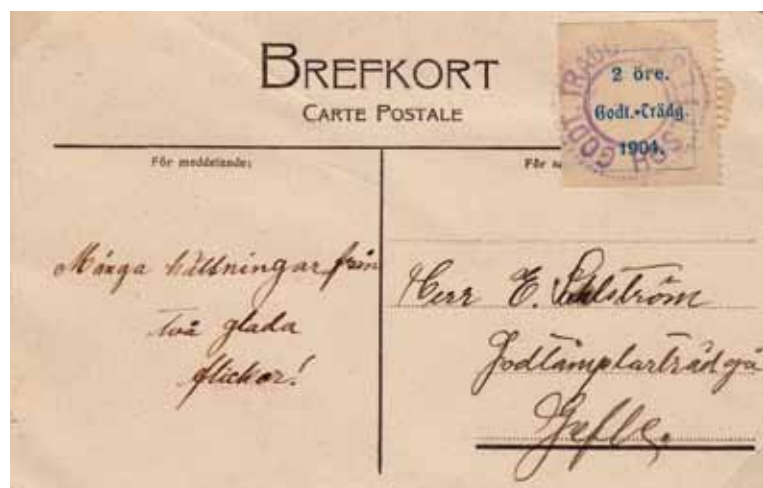 BREFKORT
CARTE POSTALE
2 öre.
Godt.-Trädg.
1904.
GODT TRÄDG
För meddelande:
För
Många hälsningar från
två glada
flickor!
Herr E.
Godtämplarträdgå
Gefle.